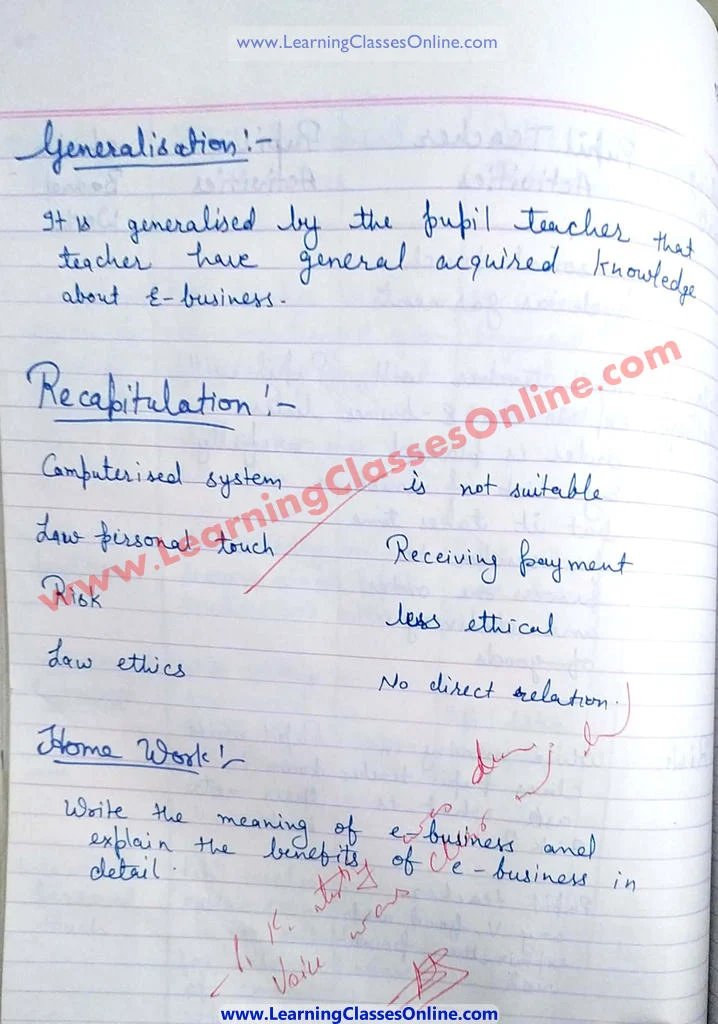 www.LearningClassesOnline.com
Generalisation:-
It is generalised by the pupil teacher that
teacher have general acquired knowledge
about E-business.
Recapitulation:-
Computerised system is not suitable
Law pirsonal touch Receiving payment
Risk less ethical
Law ethics No direct relation.
www.LearningClassesOnline.com
Home Work:-
Write the meaning of e-business and
explain the benefits of e-business in
detail.
Voice
www.LearningClassesOnline.com